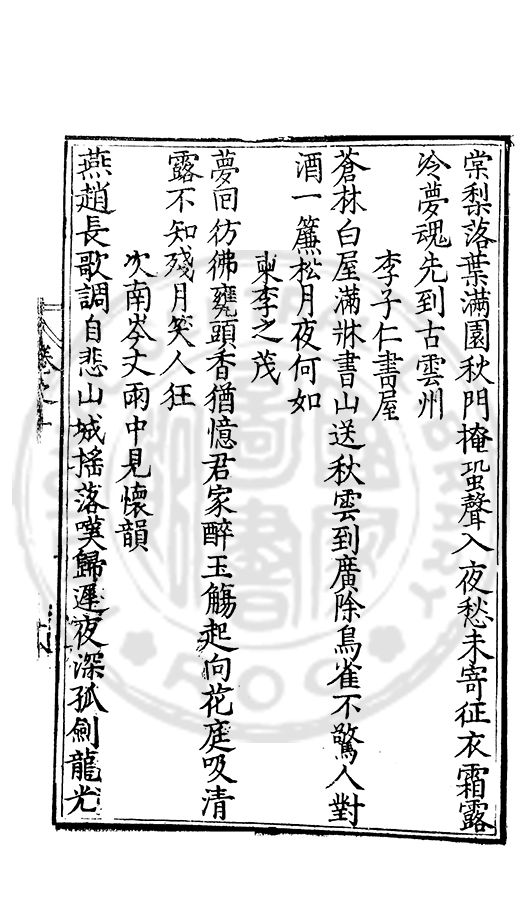 棠梨落葉滿園秋門掩蛩聲入夜愁未寄征衣霜露
冷夢魂先到古雲州
李子仁書屋
蒼林白屋滿牀書山送秋雲到廣除鳥雀不驚人對
酒一簾松月夜何如
柬李之茂
夢回彷彿甕頭香猶憶君家醉玉觴起向花庭吸清
露不知殘月笑人狂
次南岑丈雨中見懷韻
燕趙長歌調自悲山城搖落嘆歸遲夜深孤劍龍光